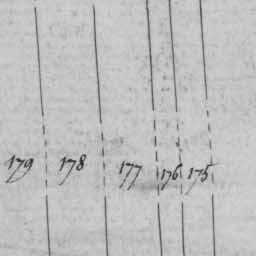 179 178 177 176 175